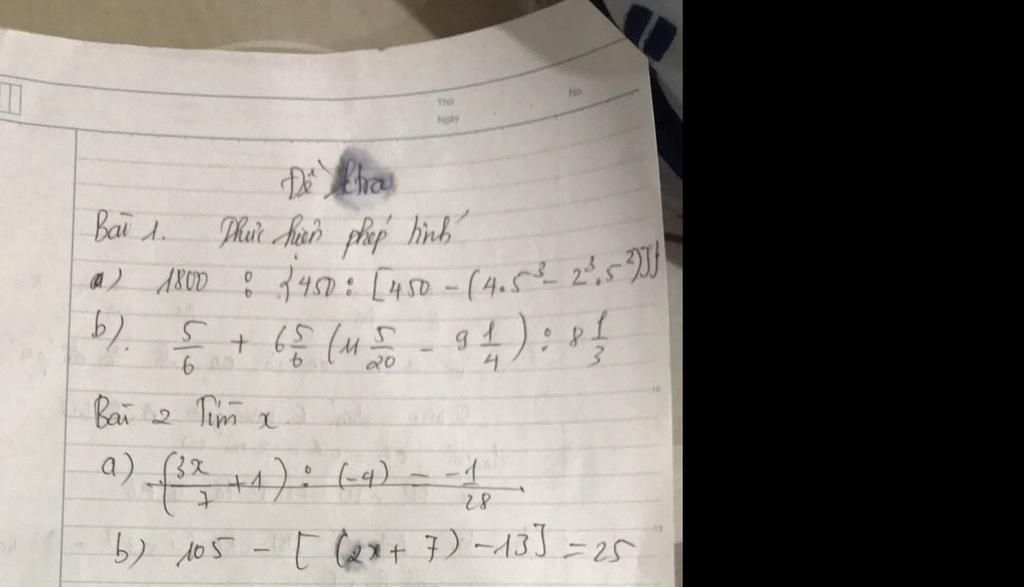 Thứ
No.
Ngày
Đề
Bài 1. Thực hiện phép tính
a) 1800 : {450 : [450 - (4.5³ - 2³.5²)]}
b). 5/6 + 6 5/6 (11 5/20 - 9 1/4) : 8 1/3
Bài 2 Tìm x
a) (3x/7 + 1) : (-4) = -1/28
b) 105 - [ (2x + 7) - 13] = 25